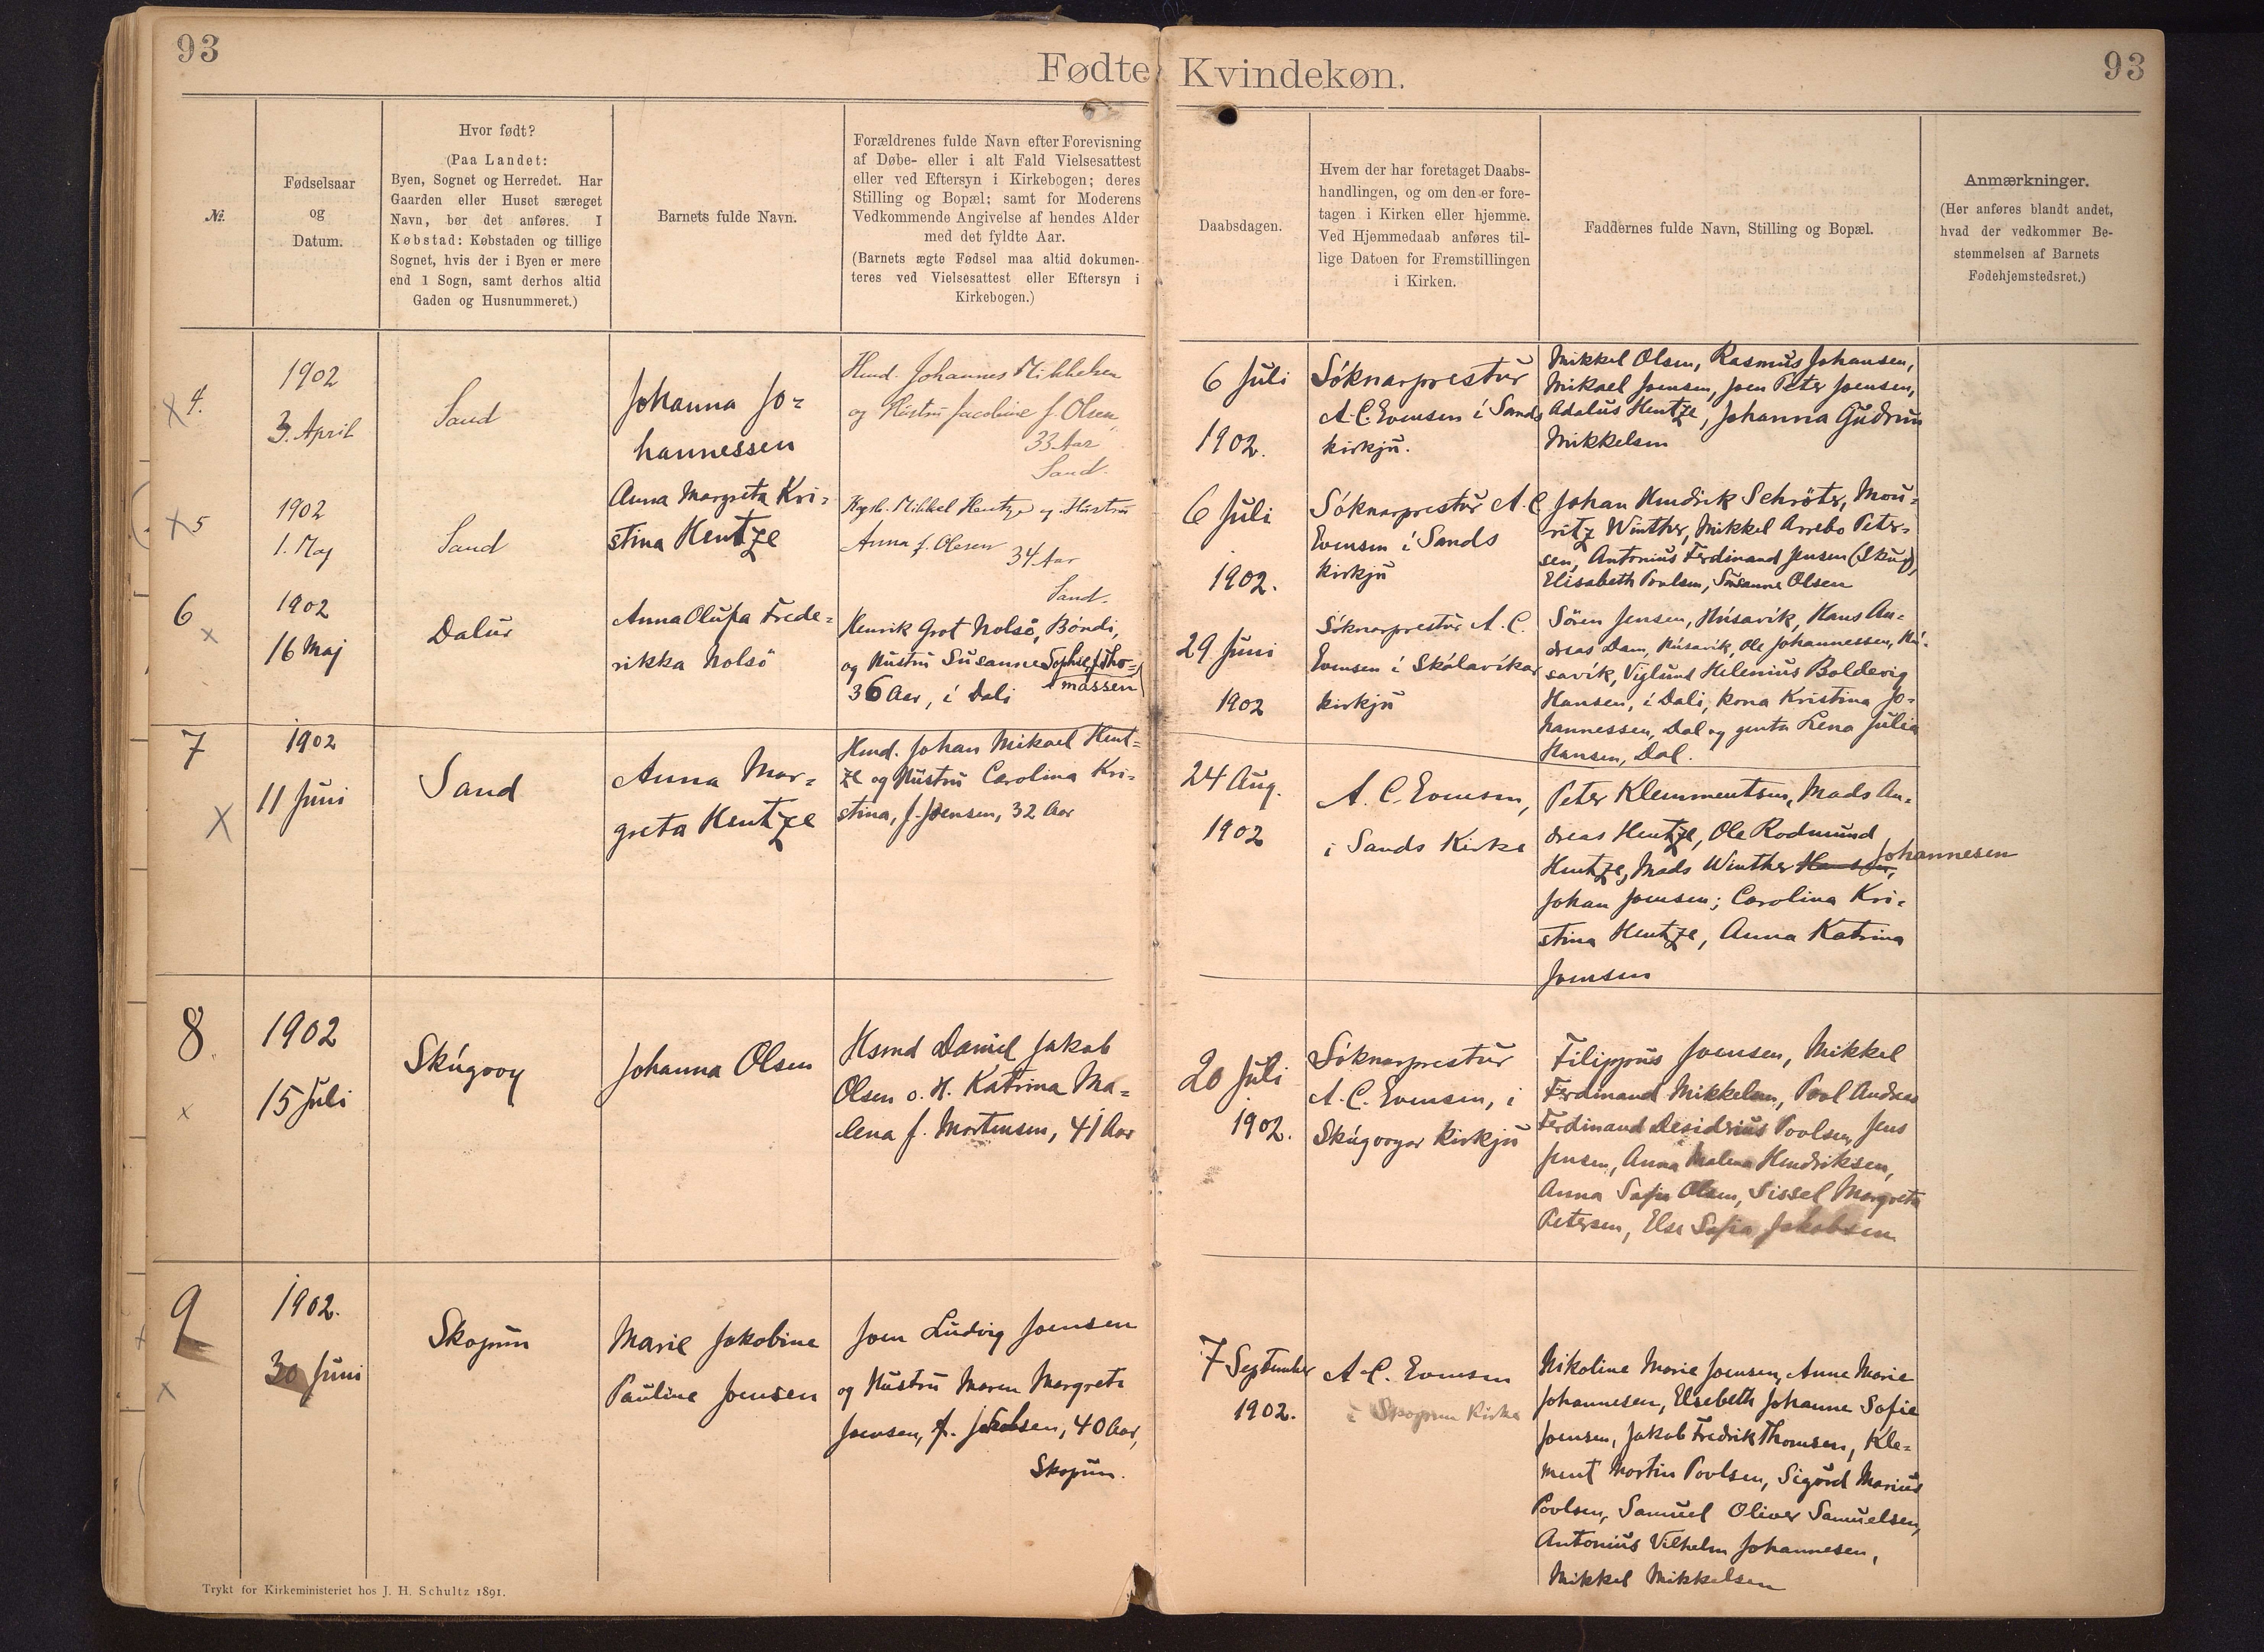 93
Fødte Kvindekøn.
93
№.
Fødselsaar
og
Datum.
Hvor født?
(Paa Landet:
Byen, Sognet og Herredet. Har
Gaarden eller Huset særeget
Navn, bør det anføres. I
Købstad: Købstaden og tillige
Sognet, hvis der i Byen er mere
end 1 Sogn, samt derhos altid
Gaden og Husnummeret.)
Barnets fulde Navn.
Forældrenes fulde Navn efter Forevisning
af Døbe- eller i alt Fald Vielsesattest
eller ved Eftersyn i Kirkebogen; deres
Stilling og Bopæl; samt for Moderens
Vedkommende Angivelse af hendes Alder
med det fyldte Aar.
(Barnets ægte Fødsel maa altid dokumen-
teres ved Vielsesattest eller Eftersyn i
Kirkebogen.)
Daabsdagen.
Hvem der har foretaget Daabs-
handlingen, og om den er fore-
tagen i Kirken eller hjemme.
Ved Hjemmedaab anføres til-
lige Datoen for Fremstillingen
i Kirken.
Faddernes fulde Navn, Stilling og Bopæl.
Anmærkninger.
(Her anføres blandt andet,
hvad der vedkommer Be-
stemmelsen af Barnets
Fødehjemstedsret.)
x 4.
1902
3. April
Sand
Johanna Jo-
hannessen
Hmd. Johannes Mikkelsen
og Hustru Jacobine f. Olsen,
33 Aar
Sand.
6 Juli
1902.
Sóknarprestur
A. C. Evensen í Sands
kirkju.
Mikkel Olsen, Rasmus Johansen,
Mikael Joensen, Joen Peter Joensen,
Adalus Hentze, Johanna Gudrun
Mikkelsen
x 5
1902
1. Maj
Sand
Anna Margreta Kri-
stina Hentze
Mikkel Hentze og Hustru
Anna f. Olesen
34 Aar
Sand.
6 Juli
1902.
Sóknarprestur A. C
Evensen í Sands
kirkju
Johan Hendrik Schröter, Mou-
ritz Winther, Mikkel Arrebo Peter-
sen, Antonius Ferdinand Jensen (Skuf),
Elisabeth Poulsen, Susanne Olsen
6 x
1902
16 Maj
Dalur
Anna Olufa Frede-
rikka Nolsö
Henrik Grot Nolsö, Bóndi,
og Hustru Susanne Sophie, f. Tho-
massen
36 Aar, í Dali
29 Juni
1902
Sóknarprestur A. C.
Evensen í Skálavíkar
kirkju
Sören Jensen, Húsavík, Hans An-
dreas Dam, Húsavík, Ole Johannessen, Hú-
savík, Viglund Helenius Boldevig
Hansen, í Dali, kona Kristina Jo-
hannessen, Dal og genta Lena Julia
Hansen, Dal.
7
x
1902
11 Juni
Sand
Anna Mar-
greta Hentze
Hmd. Johan Mikael Hent-
ze og Hustru Carolina Kri-
stina, f. Joensen, 32 Aar
24 Aug.
1902
A. C. Evensen,
i Sands Kirke
Peter Klemmentsen, Mads An-
dreas Hentze, Ole Rodmund
Hentze, Mads Winther Johannesen
Johan Joensen; Carolina Kri-
stina Hentze, Anna Katrina
Joensen
8.
x
1902
15 Juli
Skúgvoy
Johanna Olsen
Hsmd Daniel Jakob
Olsen o. H. Katrina Ma-
lena f. Mortensen, 41 Aar
20 Juli
1902.
Sóknarprestur
A. C. Evensen, í
Skúgvoyar kirkju
Filippus Joensen, Mikkel
Ferdinand Mikkelsen, Poul Andreas
Ferdinand Desidrius Poulsen, Jens
Jensen, Anna Malena Hendriksen,
Anna Sofie Olsen, Sissel Margreta
Petersen, Else Sofia Jakobsen
9
x
1902.
30 Juni
Skopun
Marie Jakobine
Pauline Joensen
Joen Ludvig Joensen
og Hustru Maren Margrete
Joensen, f. Jakobsen, 40 Aar,
Skopun.
7 September
1902.
A. C. Evensen
i Skopun Kirke
Nikoline Marie Joensen, Anne Marie
Johannesen, Elsebeth Johanne Sofie
Joensen, Jakob Fredrik Thomsen, Kle-
ment Martin Poulsen, Sigurd Marius
Poulsen, Samuel Oliver Samuelsen,
Antonius Vilhelm Johannesen,
Mikkel Mikkelsen
Trykt for Kirkeministeriet hos J. H. Schultz 1891.